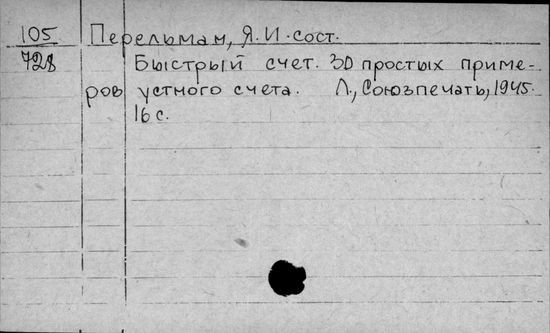 105 Перельман, Я.И. сост.
728 Быстрый счет. 30 простых приме-
ров устного счета. Л., Союзпечать, 1945.
16 с.